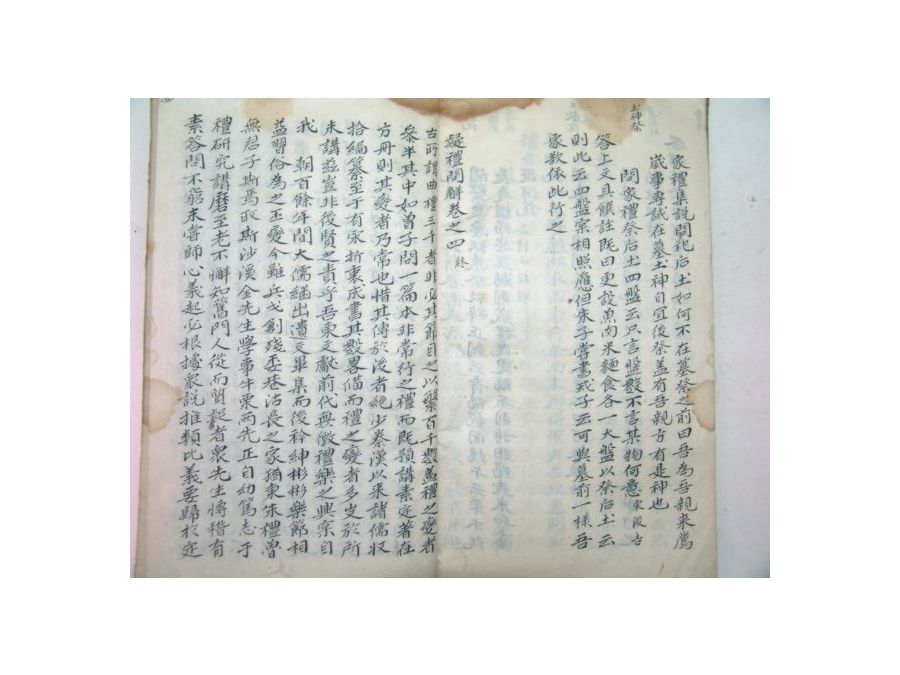 家禮集說問祀后土如何不在墓祭之前曰吾爲吾親來薦
歲事專誠在墓土神自宜後祭蓋有吾親方有是神也
土神祭
問家禮祭后土四盤云只言盤數不言其物何意
答上文具饌註旣曰更設魚肉米麵食各一大盤以祭后土云
則此云四盤宗相照應但朱子嘗書戒子云可與墓前一樣吾
家敎依此行之
疑禮問解卷之四 終
古所謂曲禮三千者非必其節目之以繁百千歟盖禮之變者
叅半其中如曾子問一篇本非常行之禮而旣預講素定著在
方冊則其變者乃常也惜其傳於後者絶少秦漢以來諸儒収
拾編纂至于有宋折衷成書其數畧備而禮之變者多闕於所
未講玆豈非後賢之責乎吾東文獻前代無徵禮樂之興宗自
我 朝百餘年間大儒繼出遺文畢集而後衿紳彬彬樂節相
益習俗爲之丕變今雖兵戈創殘委巷治喪之家猶東朱禮魯
無君子斯焉取斯沙溪金先生學事牛栗兩先正自幼篤志于
禮硏究講磨至老不懈知舊門人從而質起者衆先生博稽有
素答問不窮未嘗師心義起必根據衆說推類比義要歸於定